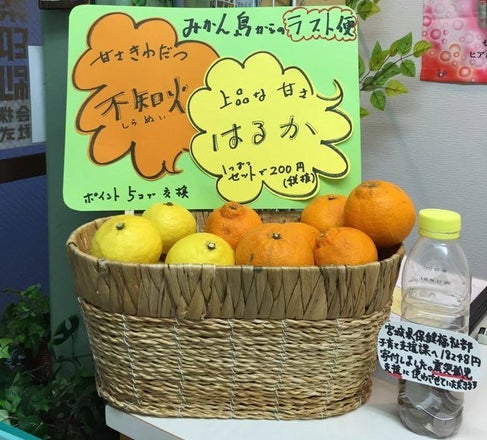 みかん島からのラスト便
甘さきわだつ
不知火
しらぬい
上品な甘さ
はるか
セットで200円
(税抜)
ポイント5コで交換
宮城県保健福祉部
子育て支援課へ18248円
寄付しました。震災孤児
支援に使わさせていただきます